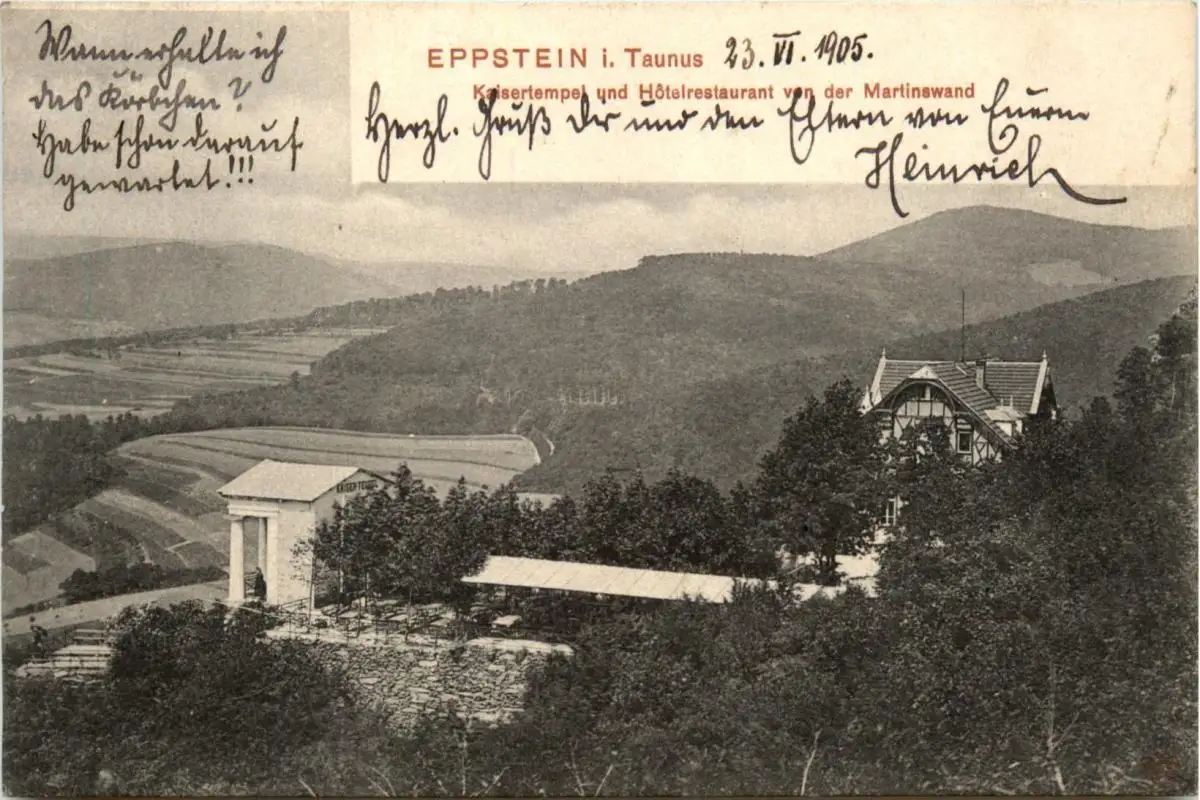 Wann erhalte ich
das Körbchen?
Habe schon darauf
gewartet!!!
EPPSTEIN i. Taunus 23. VI. 1905.
Kaisertempel und Hôtelrestaurant von der Martinswand
Herzl. Gruß Dir und den Eltern von Euerm
Heinrich
KAISER-TEMPEL